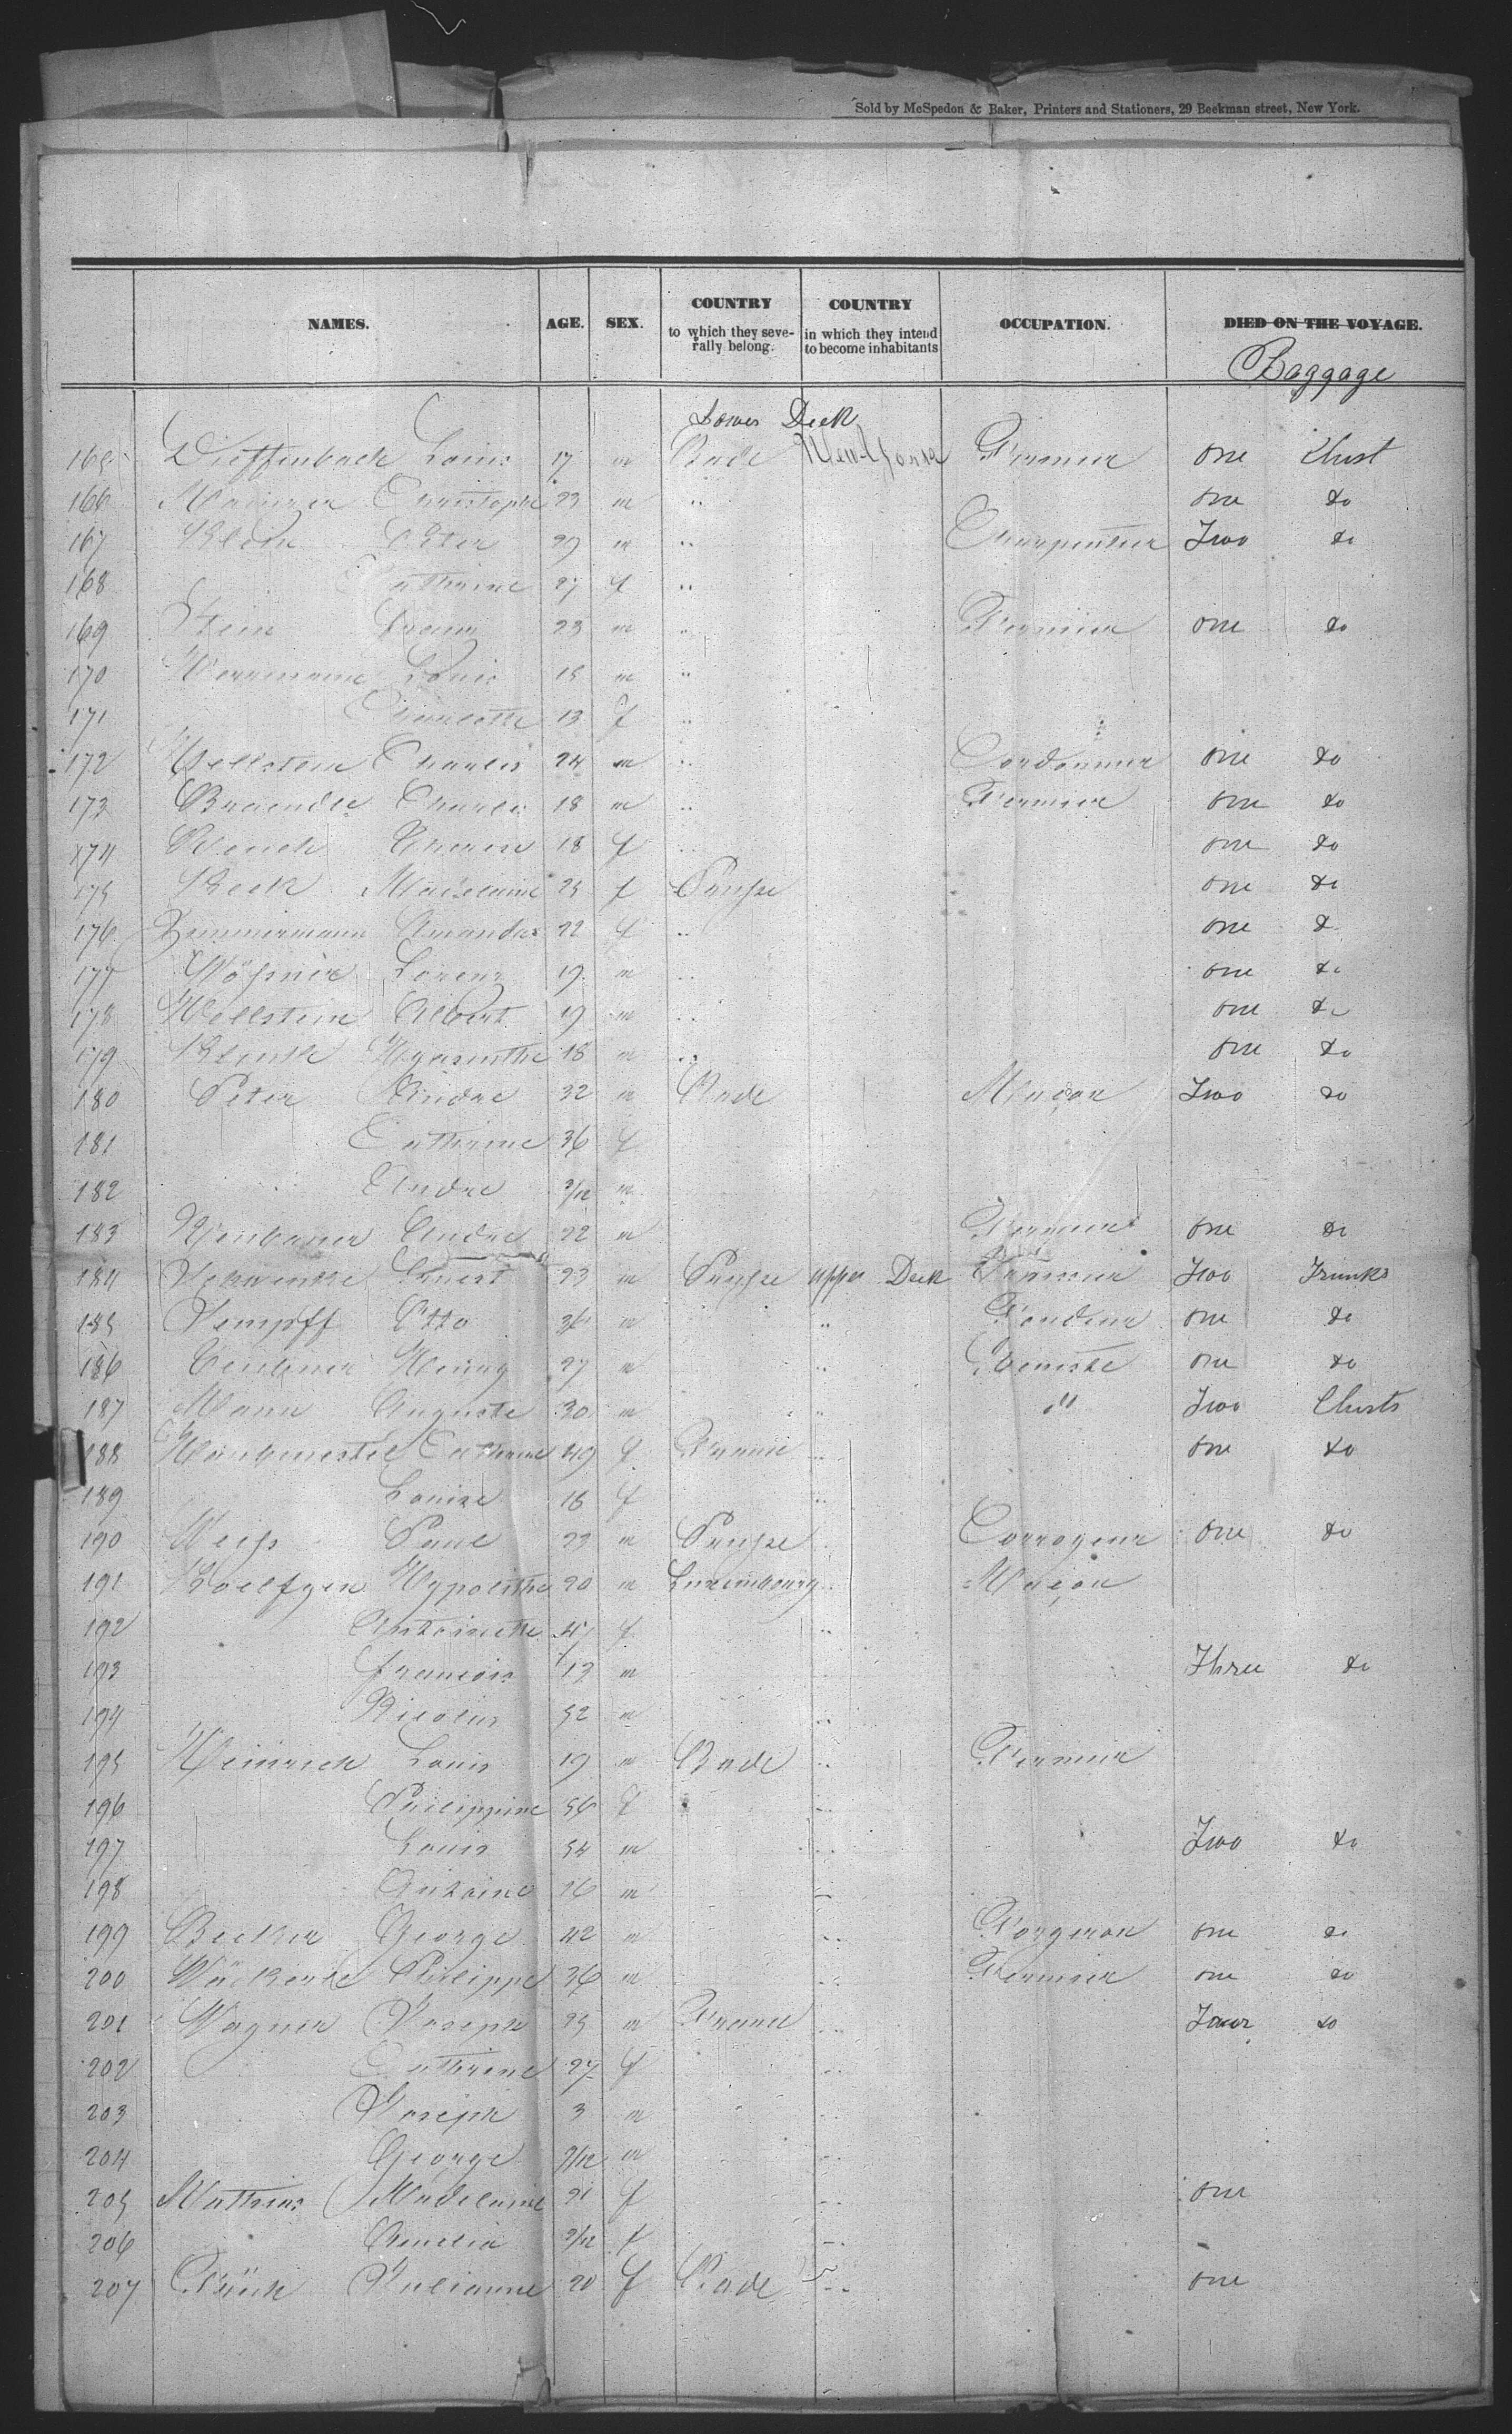 Sold by McSpedon & Baker, Printers and Stationers, 29 Beekman street, New York.
NAMES. AGE. SEX. COUNTRY to which they severally belong. COUNTRY in which they intend to become inhabitants OCCUPATION. DIED ON THE VOYAGE.
Baggage
Lower Deck
165 Dieffenbach Louis 17 m Bade New-York Fermier one Chest
166 Christophe 23 m " one do
167 Klein Peter 29 m " Charpentier Two do
168 Catherine 27 f "
169 Stein Franz 23 m " Fermier one do
170 Louis 15 m "
171 Charlotte 13 f "
172 Wellstein Charles 24 m " Cordonnier one do
173 Braendle Charles 18 m " Fermier one do
174 Therese 18 f " one do
175 Keck Madelaine 25 f Prusse one do
176 Zimmermann Amandus 22 f " one do
177 Wößner Lorenz 19 m " one do
178 Wellstein Albert 19 m " one do
179 Klink Hyacinthe 18 m " one do
180 Peter André 32 m Bade Maçon Two do
181 Catherine 36 f
182 Andre m
183 Andre 22 m Fermier one do
184 Schwenke Ernest 23 m Prusse upper Deck Two Trunks
185 Kempff Otto m " Fondeur one do
186 Henry 27 m " one do
187 Mann Auguste 30 m " " Two Chests
188 Catherine 49 f France " one do
189 Louise 16 f "
190 Weiss Paul 23 m Prusse " Corroyeur one do
191 Koeltgen Hypolithe 20 m Luxembourg " Maçon
192 Antoinette f "
193 francois m Three do
194 Nicolas 52 m "
195 Heinrich Louis 19 m Bade " Fermier
196 Philippine 56 f "
197 Louis 54 m " Two do
198 Antoine 16 m "
199 Becker George 42 m " Forgeron one do
200 Wäckerle Philippe 36 m " Fermier one do
201 Wagner Joseph 25 m France " Four do
202 Catherine 27 f
203 Joseph 3 m "
204 George 9/12 m "
205 Mathias Madelaine 21 f " one
206 Amelia 9/12 f "
207 Julianne 20 f Bade " one